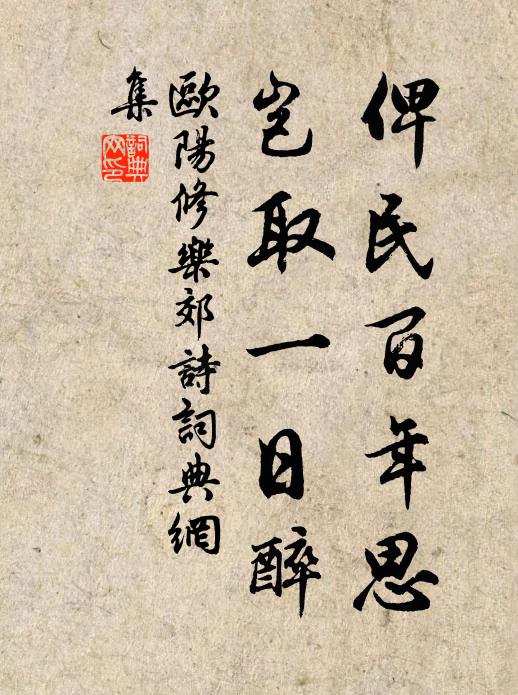 俾民百年思
岂取一日醉
歐陽修樂郊詩詞典網
集
詞典
网印